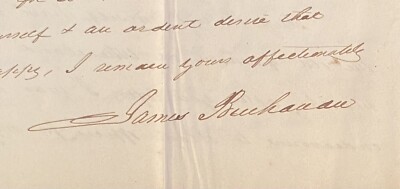 urself & an ardent desire that
appy, I remain yours affectionately
James Buchanan